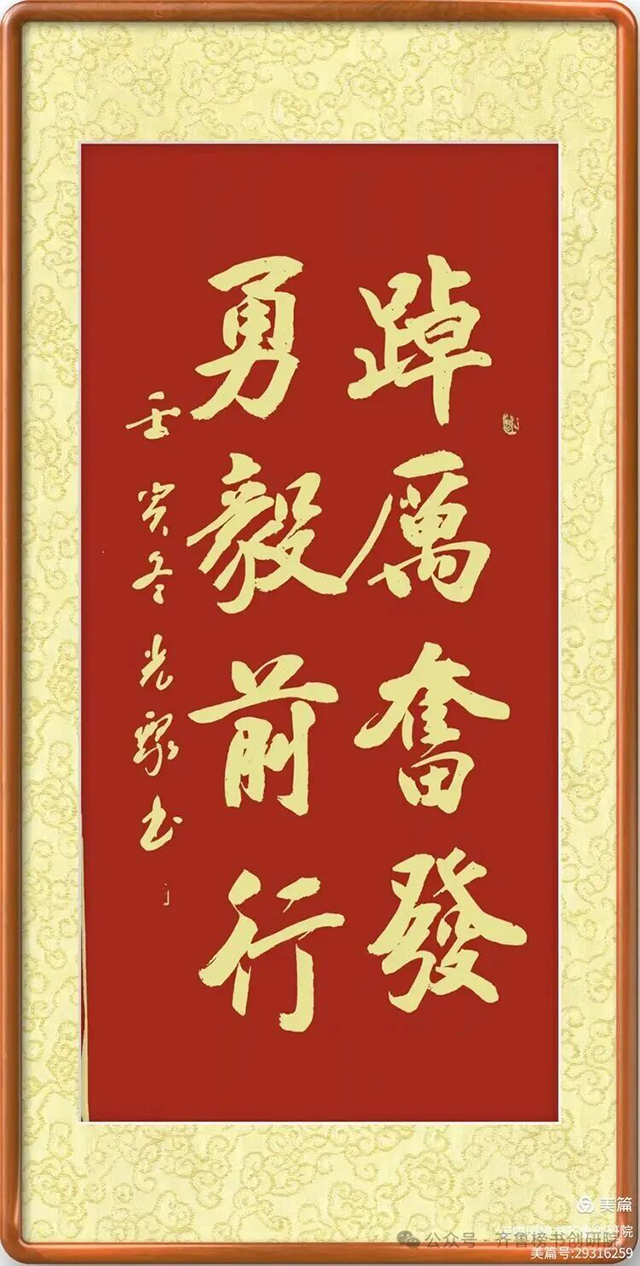 踔厲奮發
勇毅前行
壬寅冬光聚书
美篇
公众号·齐鲁榜书创研院
美篇号:29316259